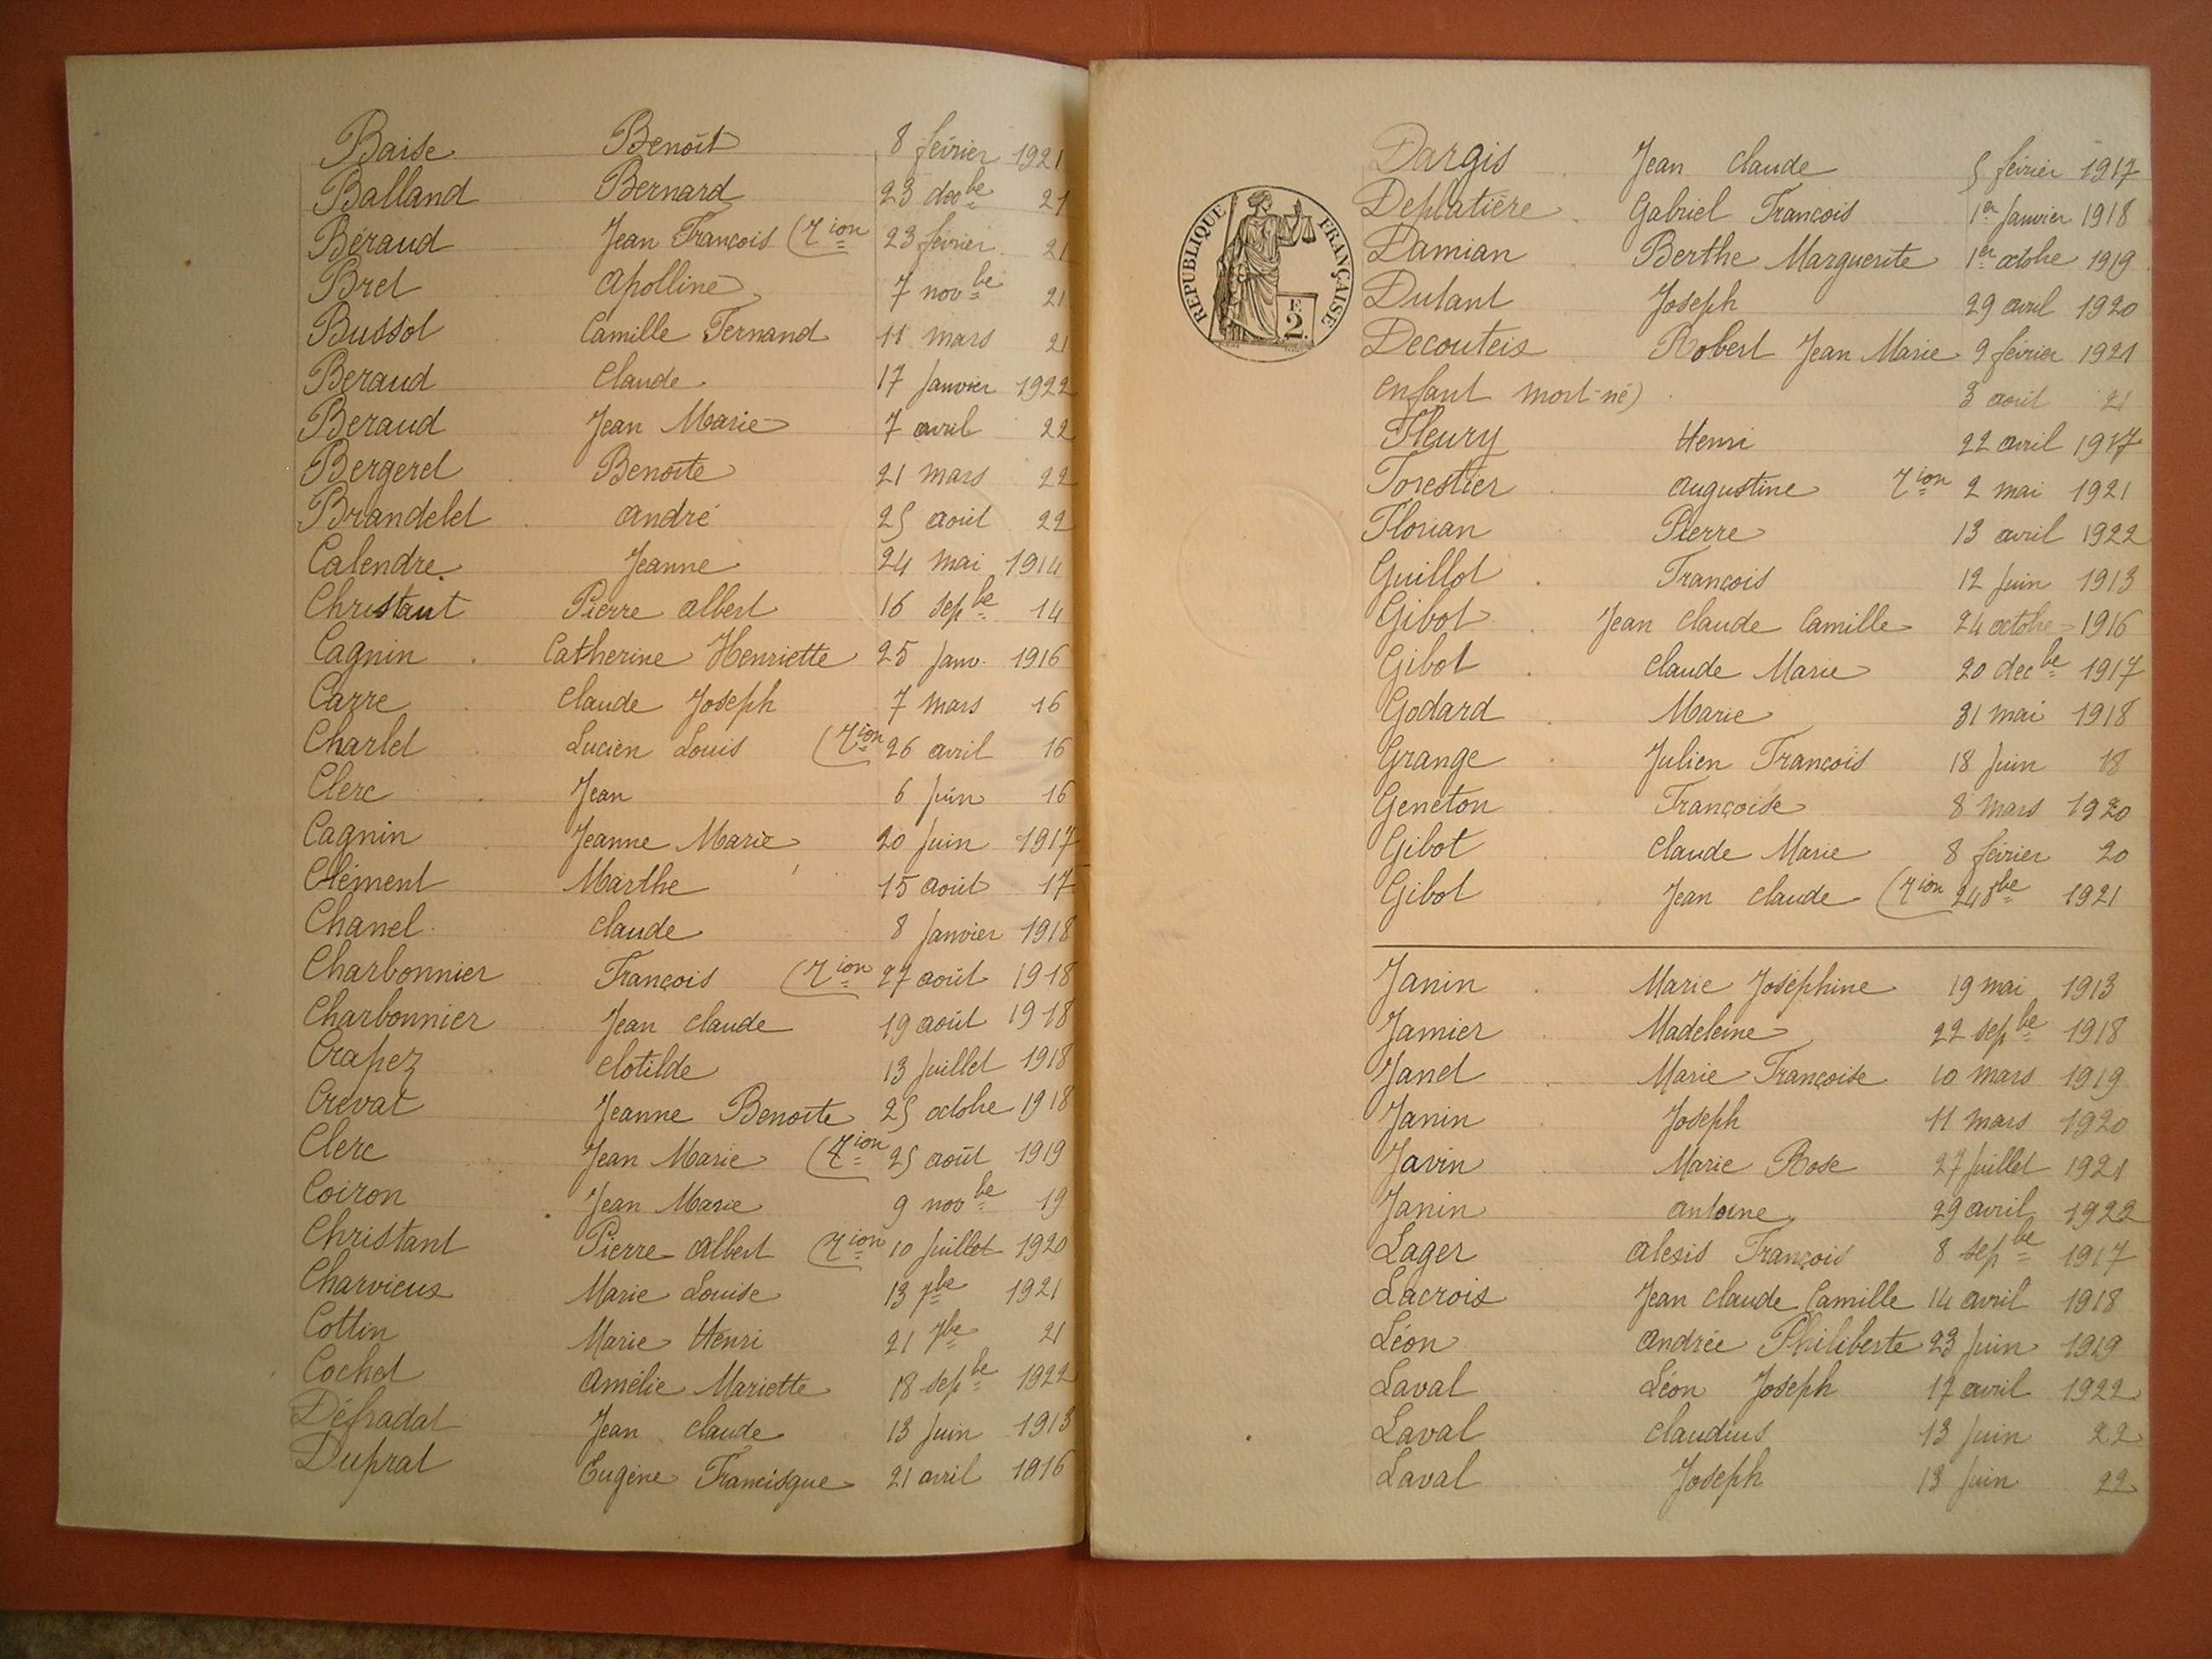 Baise Benoît 8 février 1921
Balland Bernard 23 decbe 21
Béraud Jean François (Tion 23 février 21
Bret Apolline 7 novbe 21
Bussol Camille Fernand 11 mars 21
Beraud Claude 17 Janvier 1922
Beraud Jean Marie 7 avril 22
Bergeret Benoîte 21 mars 22
Brandelet André 25 août 22
Calendre Jeanne 24 mai 1914
Christaut Pierre Albert 16 sepbe 14
Cagnin Catherine Henriette 25 Janv. 1916
Carre Claude Joseph 7 mars 16
Charlet Lucien Louis (Tion 26 avril 16
Clerc Jean 6 Juin 16
Cagnin Jeanne Marie 20 Juin 1917
Clément Marthe 15 août 17
Chanel Claude 8 Janvier 1918
Charbonnier François (Tion 27 août 1918
Charbonnier Jean Claude 19 août 1918
Crapez Clotilde 13 Juillet 1918
Crevat Jeanne Benoîte 25 octobre 1918
Clerc Jean Marie (Tion 25 août 1919
Coiron Jean Marie 9 novbe 19
Christant Pierre Albert (Tion 10 Juillet 1920
Charvieux Marie Louise 13 7be 1921
Cottin Marie Henri 21 7be 21
Cochet Amélie Mariette 18 sepbe 1922
Défradat Jean Claude 13 Juin 1913
Duprat Eugène Francisque 21 avril 1916
RÉPUBLIQUE FRANÇAISE
F. 2.
Dargis Jean Claude 5 février 1917
Deplatière Gabriel François 1er Janvier 1918
Damian Berthe Marguerite 1er octobre 1919
Dutant Joseph 29 avril 1920
Decouteix Robert Jean Marie 9 février 1921
enfant mort-né) 3 août 21
Fleury Henri 22 avril 1917
Forestier Augustine Tion 2 mai 1921
Florian Pierre 13 avril 1922
Guillot François 12 Juin 1913
Gibot Jean Claude Camille 24 octobre 1916
Gibot Claude Marie 20 decbe 1917
Godard Marie 31 mai 1918
Grange Julien François 18 Juin 18
Geneton Françoise 8 mars 1920
Gibot Claude Marie 8 février 20
Gibot Jean Claude (Tion 24 8be 1921
Janin Marie Joséphine 19 mai 1913
Jamier Madeleine 22 sepbe 1918
Janet Marie Françoise 10 mars 1919
Janin Joseph 11 mars 1920
Javin Marie Rose 27 Juillet 1921
Janin Antoine 29 avril 1922
Lager Alexis François 8 sepbe 1917
Lacroix Jean Claude Camille 14 avril 1918
Léon Andrée Philiberte 23 Juin 1919
Laval Léon Joseph 17 avril 1922
Laval Claudius 13 Juin 22
Laval Joseph 13 Juin 22